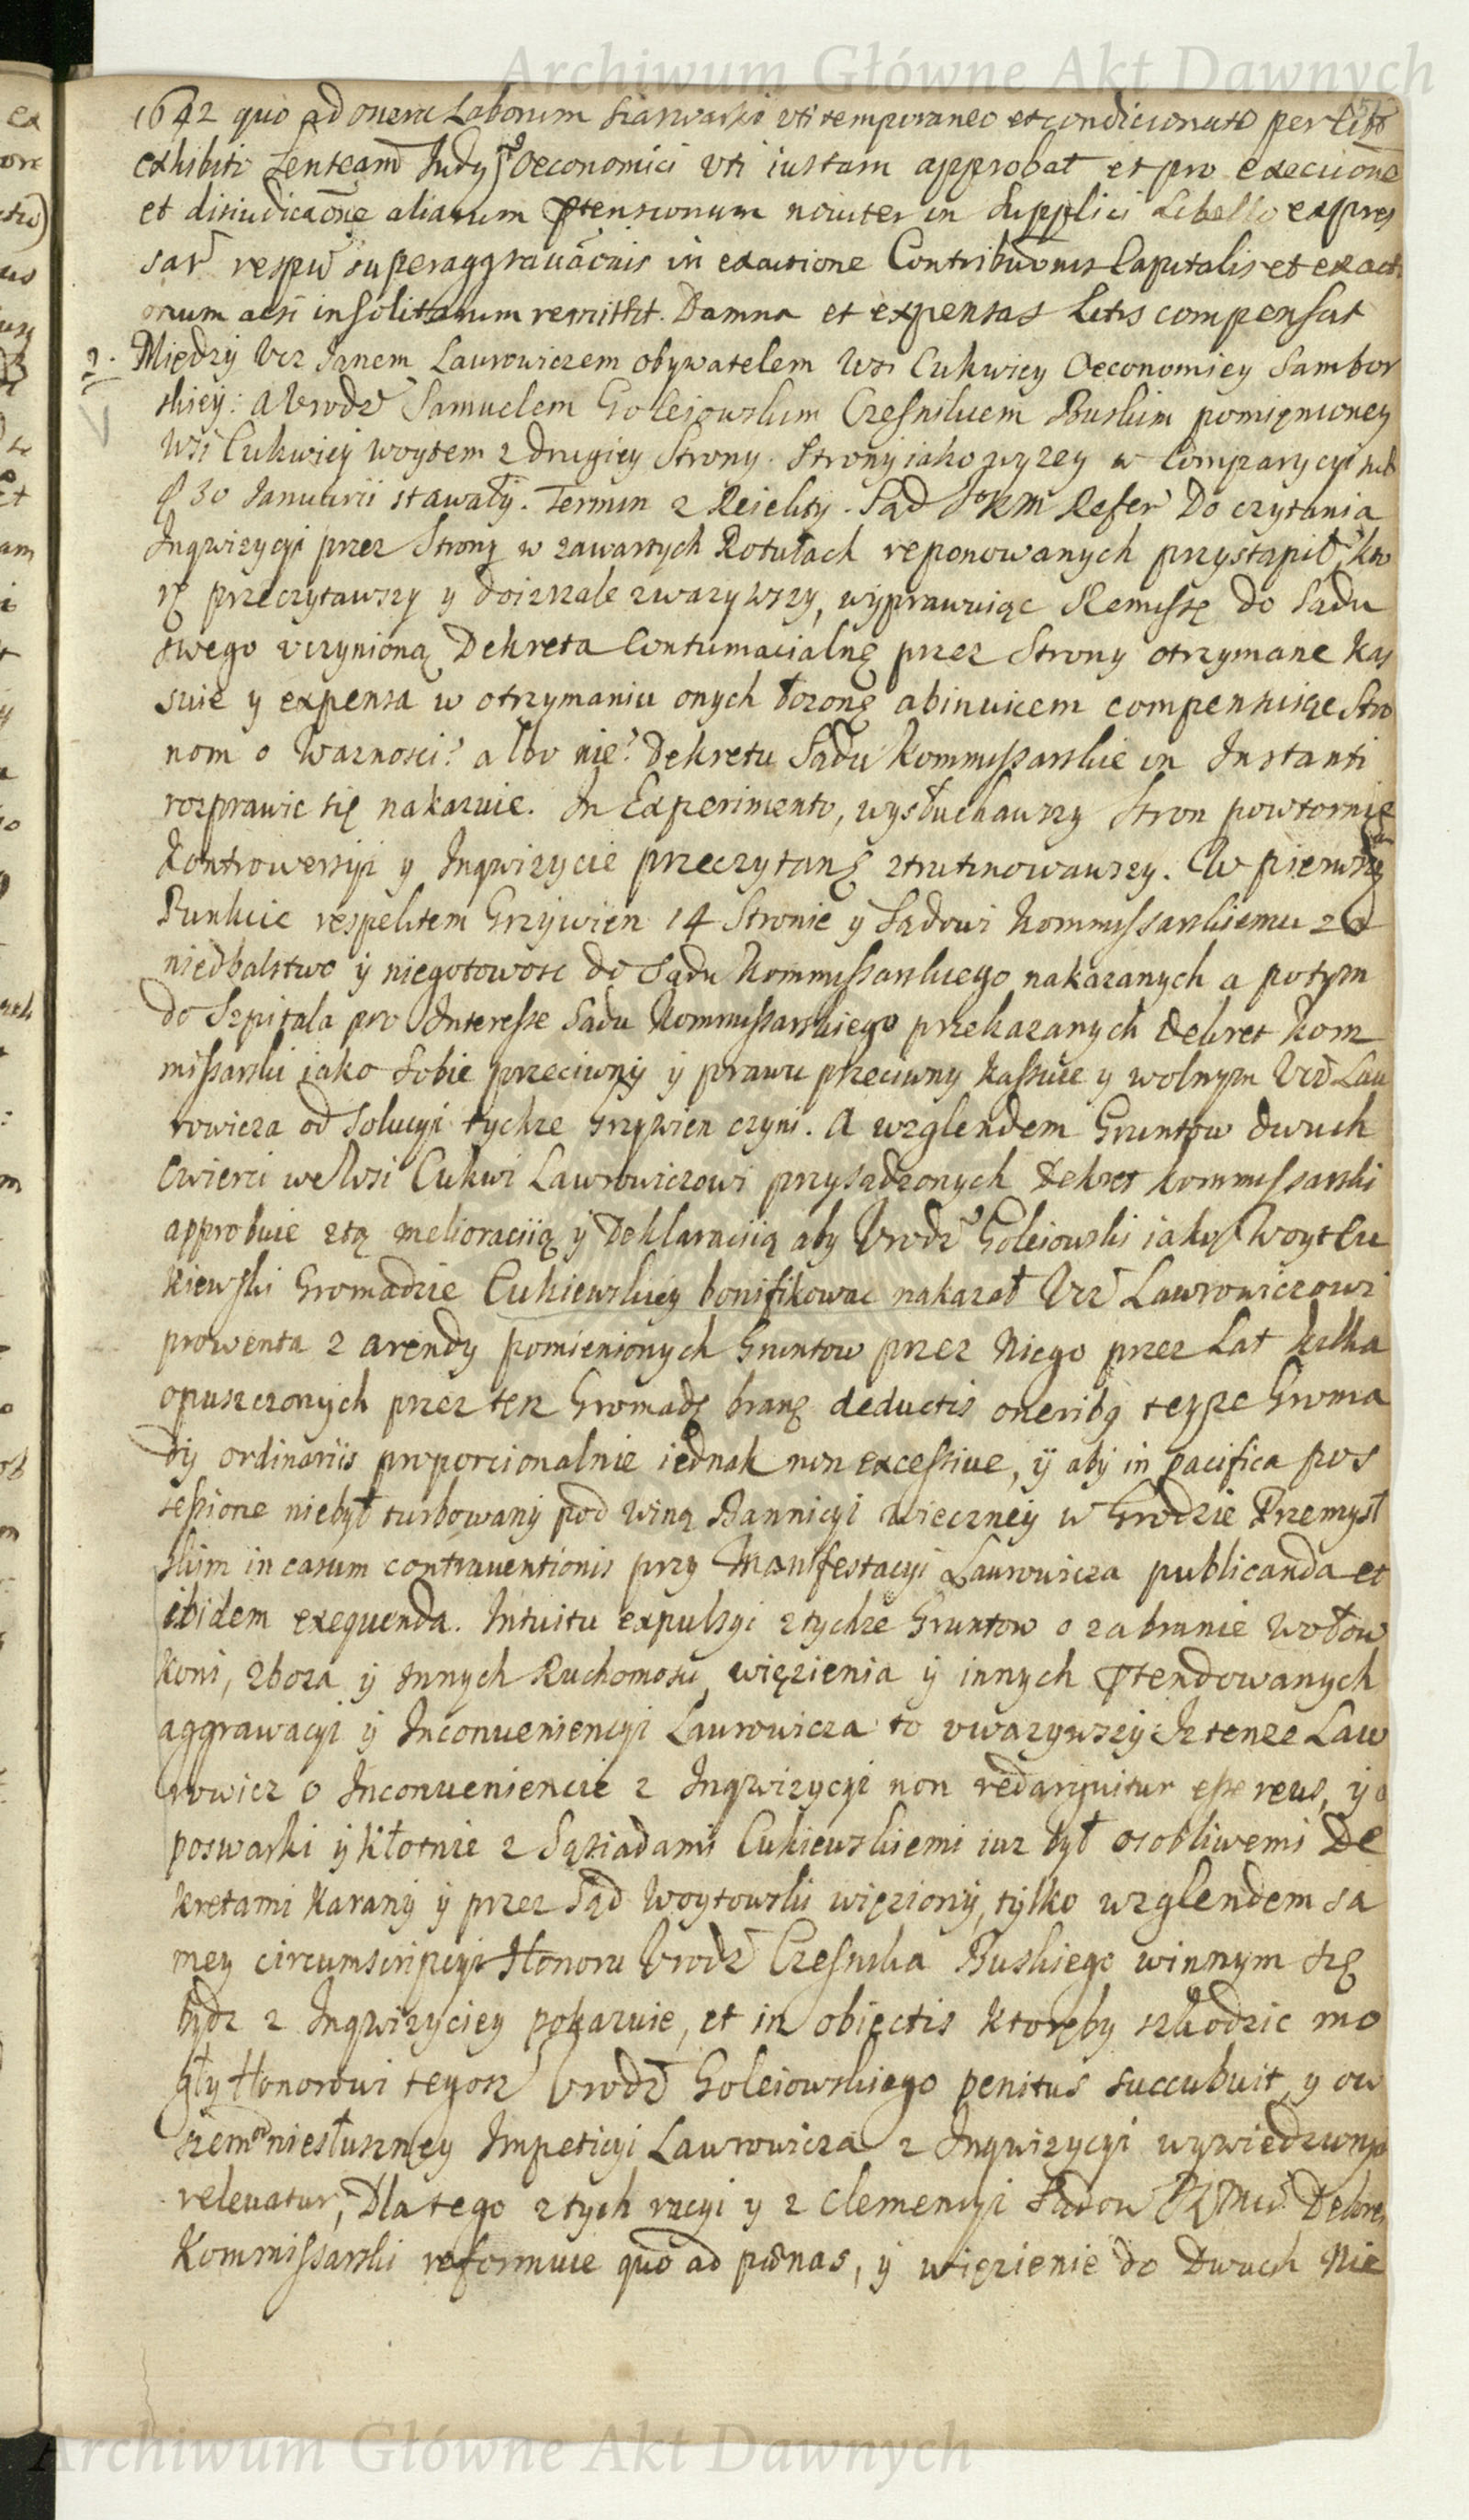 Archiwum Główne Akt Dawnych
1642 quo ad onera Laborum szarwarki uti temporaneo et condicionato per
exhibiti Oeconomici uti iustam approbat et pro execuone
et disiudicaone aliarum ptensionum noviter in Supplici Libello expres
sar respū superaggravaonis in exactione Contribuonis Capitalis et exact
onum insolitarum remittit. Damna et expensas Litis compensat
2. Między Ucz Janem Laurowiczem obywatelem Wsi Cukwiey Oeconomiey Sambor
skiey: a Urodz Samuelem Goleiowskim Czesnikiem Buskim pomięnioney
Wsi Cukwiey woytem z drugiey Strony. Strony iako wyzey w Comparycyi sub
30 Januarii stawały. Termin z Reiekty. Sąd JKM Refer Do czytania
Inqwizycyi przez Strony w zawartych Rotułach reponowanych przystąpił, kto
rę przeczytawszy y doizrzale zwazywszy, wyprawuiąc Remissę do Sądu
swego uczynioną Dekreta Contumacialnę przez Strony otrzymane kas
suie y expensa w otrzymaniu onych łozonę abinvicem compensuiąc Stro
nom o Waznosci? albo nie? Dekretu Sądu Kommissarskie in Instanti
rozprawic się nakazuie. In Experimento, wysłuchawszy Stron powtornię
Kontrowersyi y Inqwizycie przeczytanę ztrutinowawszy. W pierwszym
Punkcie respektem Grzywien 14 Stronie y Sądowi Kommyssarskiemu za
niedbalstwo y niegotowosc do Sądu Kommissarskiego nakazanych a potym
do Szpitala pro Interesse Sądu Kommissarskiego przekazanych Dekret Kom
missarski iako Sobie przeciwny y prawu przeciwny kassuie y wolnym Ucz Lau
rowicza od Solucyi tychze Grzywien czyni. A wzglendem Gruntow dwuch
Cwierci we Wsi Cukwi Lawrowiczowi przysądzonych Dekret kommissarski
approbuie ztą melioraciią y Deklaraciią aby Urodz Goleiowski iako Woyt Cu
kiewski Gromadzie Cukiewskiey bonifikowac nakazał Ucz Lawrowiczowi
prowenta z arendy pomienionych Gruntow przez Niego przez Lat kilka
opuszczonych przez tęz Gromadę branę deductis oneribq teyze Groma
dy ordinariis proporcionalnie iednak non excessive, y aby in pacifica pos
sessione niebył turbowany pod winą Bannicyi wieczney w Grodzie Przemysl
skim in casum contraventionis przy Manifestacyi Laurowicza publicanda et
ibidem exequenda. Intuitu expulsyi z tychze Gruntow o zabranie wołow
Koni, zboza y Innych Ruchomosci, więzienia y innych ptendowanych
aggrawacyi y Inconveniencyi Laurowicza to uwazywszy Iz tenze Law
rowicz o Inconveniencie z Inqwizycyi non redarguitur esse reus, y o
poswarki y kłotnie z Sąsiadami Cukiewskiemi iuz był osobliwemi De
kretami karany y przez Sąd Woytowski więziony, tylko wzglendem sa
mey circumscripcyi Honoru Urodz Czesnika Buskiego winnym się
bydz z Inqwizyciey pokazuie, et in obiectis ktoręby szkodzic mo
gły Honorowi tegosz Urodz Goleiowskiego penitus succubuit, y ow
szem niesłuszney Impeticyi Laurowicza z Inqwizycyi
relevatur, Dlatego z tych racyi y z Clemencyi Sądow Dekret
Kommissarski reformuie quo ad pœnas, y więzienie do Dwuch Nie
Archiwum Główne Akt Dawnych